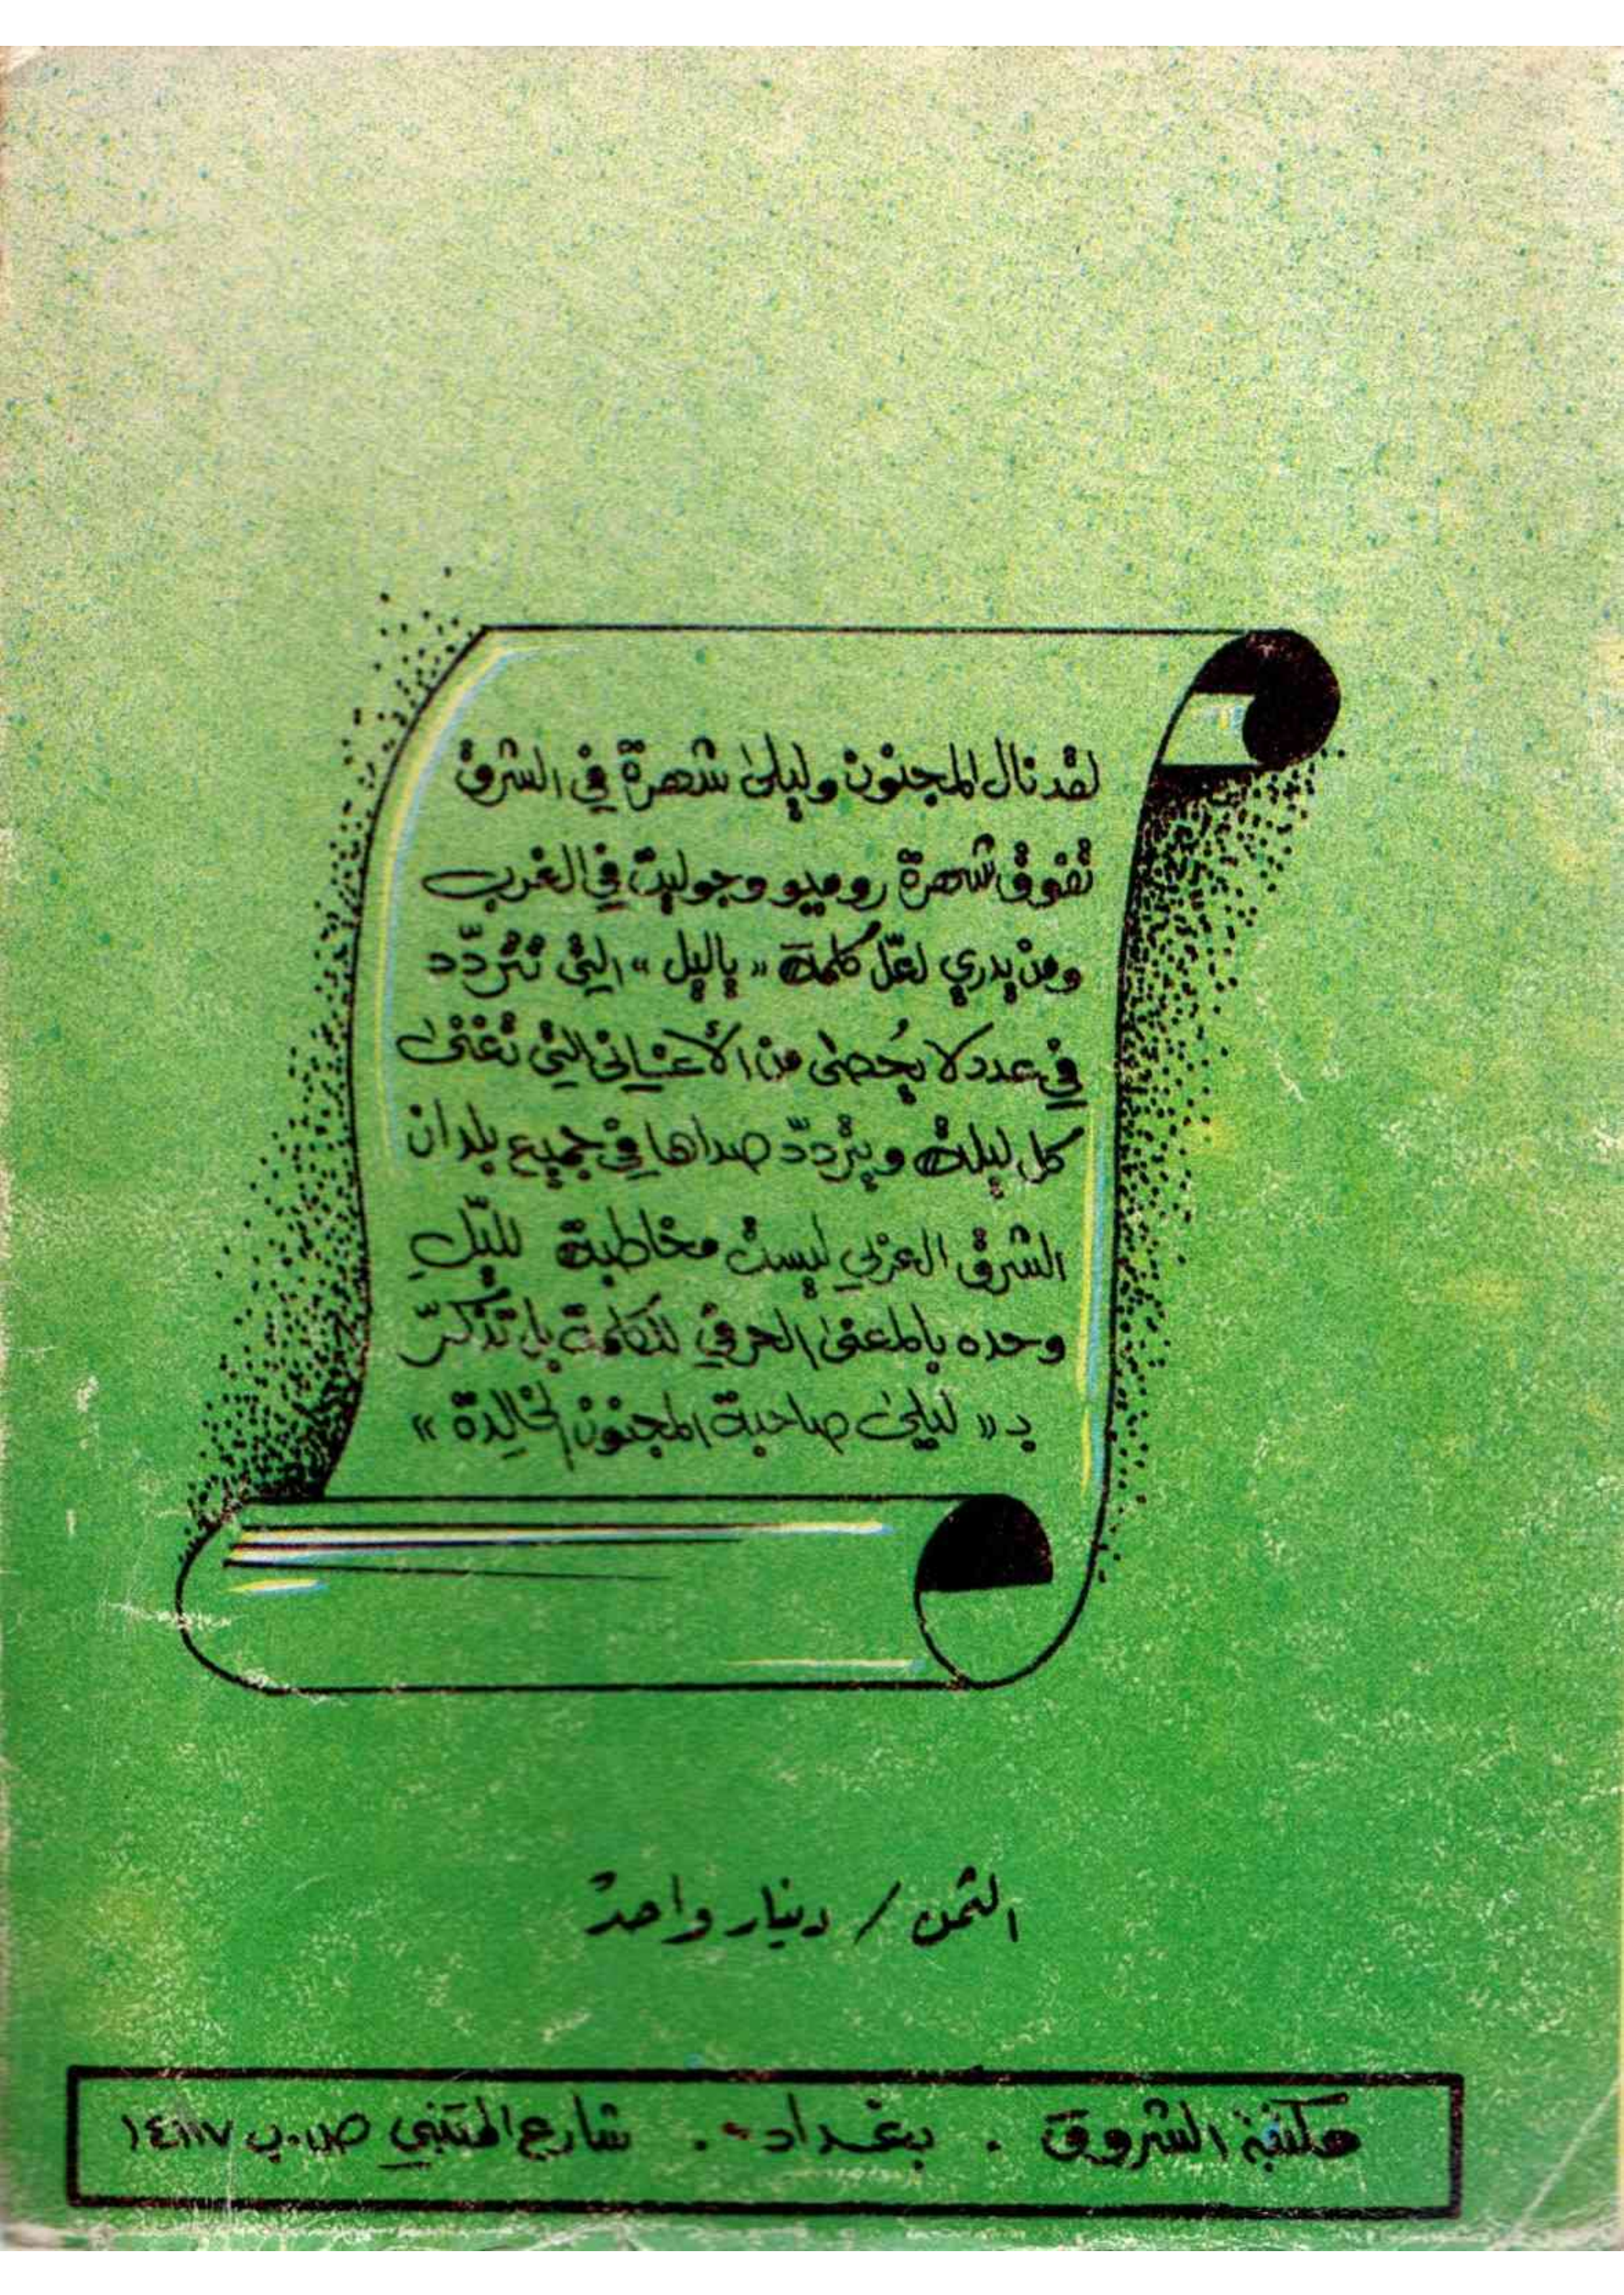 لقد نال المجنون وليلى شهرة في الشرق
تفوق شهرة روميو وجوليت في الغرب
ومن يدري لعلّ كلمة « ياليل » التي تتردّد
في عدد لا يُحصى من الأغاني التي تغنى
كل ليلة ويتردّد صداها في جميع بلدان
الشرق العربي ليست مخاطبة لليّلِ
وحده بالمعنى الحرفي للكلمة بل تذكّر
بـ « ليلى صاحبة المجنون الخالِدة »
الثمن / دينار واحد
مكتبة الشروق . بغداد . شارع المتنبي ص.ب ١٤١١٧